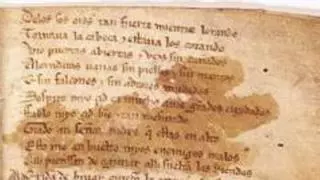 Delos sos oios tan fuerte mientre lorando
Tornaua la cabeça e estaua los catando
Vio puertas abiertas e vços sin cañados
Alcandaras uazias sin pielles e sin mantos
E sin falcones e sin adtores mudados
Sospiro myo çid grandes cuydados
Fablo myo çid bien e tan mesurado
Grado ati señor padre que estas en alto
Esto me an buelto myos enemigos malos
Alli pienssan de aguijar alli sueltan las riendas
Ala exida de biuar ouieron la